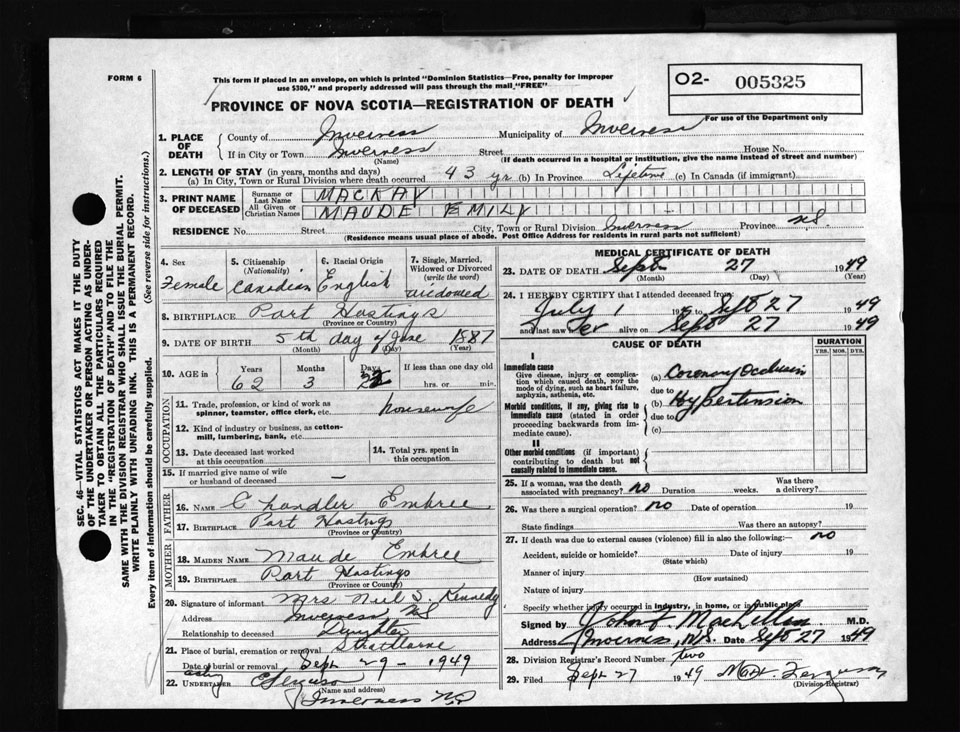 FORM 6
This form if placed in an envelope, on which is printed "Dominion Statistics—Free, penalty for improper
use $300," and properly addressed will pass through the mail "FREE"
O2- 005325
For use of the Department only
PROVINCE OF NOVA SCOTIA—REGISTRATION OF DEATH
1. PLACE OF DEATH
County of Inverness Municipality of Inverness
If in City or Town Inverness Street House No.
(Name) (If death occurred in a hospital or institution, give the name instead of street and number)
2. LENGTH OF STAY (in years, months and days)
(a) In City, Town or Rural Division where death occurred 43 yr (b) In Province Lifetime (c) In Canada (if immigrant)
3. PRINT NAME OF DECEASED
Surname or Last Name MACKAY
All Given or Christian Names MAUDE EMILY
RESIDENCE No. Street City, Town or Rural Division Inverness Province NS
(Residence means usual place of abode. Post Office Address for residents in rural parts not sufficient)
4. Sex Female
5. Citizenship (Nationality) Canadian
6. Racial Origin English
7. Single, Married, Widowed or Divorced (write the word) widowed
8. BIRTHPLACE Port Hastings
(Province or Country)
9. DATE OF BIRTH 5th day of June 1887
(Month) (Day) (Year)
10. AGE in Years 62 Months 3 Days 22 If less than one day old hrs. or min.
OCCUPATION
11. Trade, profession, or kind of work as spinner, teamster, office clerk, etc. housewife
12. Kind of industry or business, as cotton-mill, lumbering, bank, etc.
13. Date deceased last worked at this occupation
14. Total yrs. spent in this occupation
15. If married give name of wife or husband of deceased —
FATHER
16. Name Chandler Embree
17. Birthplace Port Hastings
(Province or Country)
MOTHER
18. Maiden Name Maude Embree
19. Birthplace Port Hastings
(Province or Country)
20. Signature of informant Mrs Neil S. Kennedy
Address Inverness NS
Relationship to deceased Daughter
21. Place of burial, cremation or removal Strathlorne
Date of burial or removal Sept 29 - 1949
22. acting UNDERTAKER
(Name and address)
Inverness NS
MEDICAL CERTIFICATE OF DEATH
23. DATE OF DEATH Sept 27 1949
(Month) (Day) (Year)
24. I HEREBY CERTIFY that I attended deceased from
July 1 19 to Sept 27 1949
and last saw her alive on Sept 27 1949
CAUSE OF DEATH
DURATION
YRS. MOS. DYS.
I
Immediate cause
Give disease, injury or complication which caused death, NOT the mode of dying, such as heart failure, asphyxia, asthenia, etc.
(a) Coronary Occlusion
due to
Morbid conditions, if any, giving rise to immediate cause (stated in order proceeding backwards from immediate cause).
(b) Hypertension
due to
(c)
II
Other morbid conditions (if important) contributing to death but not causally related to immediate cause.
25. If a woman, was the death associated with pregnancy? no Duration weeks. Was there a delivery?
26. Was there a surgical operation? no Date of operation 19
State findings Was there an autopsy?
27. If death was due to external causes (violence) fill in also the following:— no
Accident, suicide or homicide? Date of injury 19
(State which)
Manner of injury
(How sustained)
Nature of injury
Specify whether injury occurred in industry, in home, or in public place
Signed by John F. MacLellan M.D.
Address Inverness, N.S. Date Sept 27 1949
28. Division Registrar's Record Number two
29. Filed Sept 27 1949
(Division Registrar)
SEC. 46—VITAL STATISTICS ACT MAKES IT THE DUTY
OF THE UNDERTAKER OR PERSON ACTING AS UNDER-
TAKER TO OBTAIN ALL THE PARTICULARS REQUIRED
IN THE "REGISTRATION OF DEATH" AND TO FILE THE
SAME WITH THE DIVISION REGISTRAR WHO SHALL ISSUE THE BURIAL PERMIT.
WRITE PLAINLY WITH UNFADING INK. THIS IS A PERMANENT RECORD.
Every item of information should be carefully supplied. (See reverse side for instructions.)